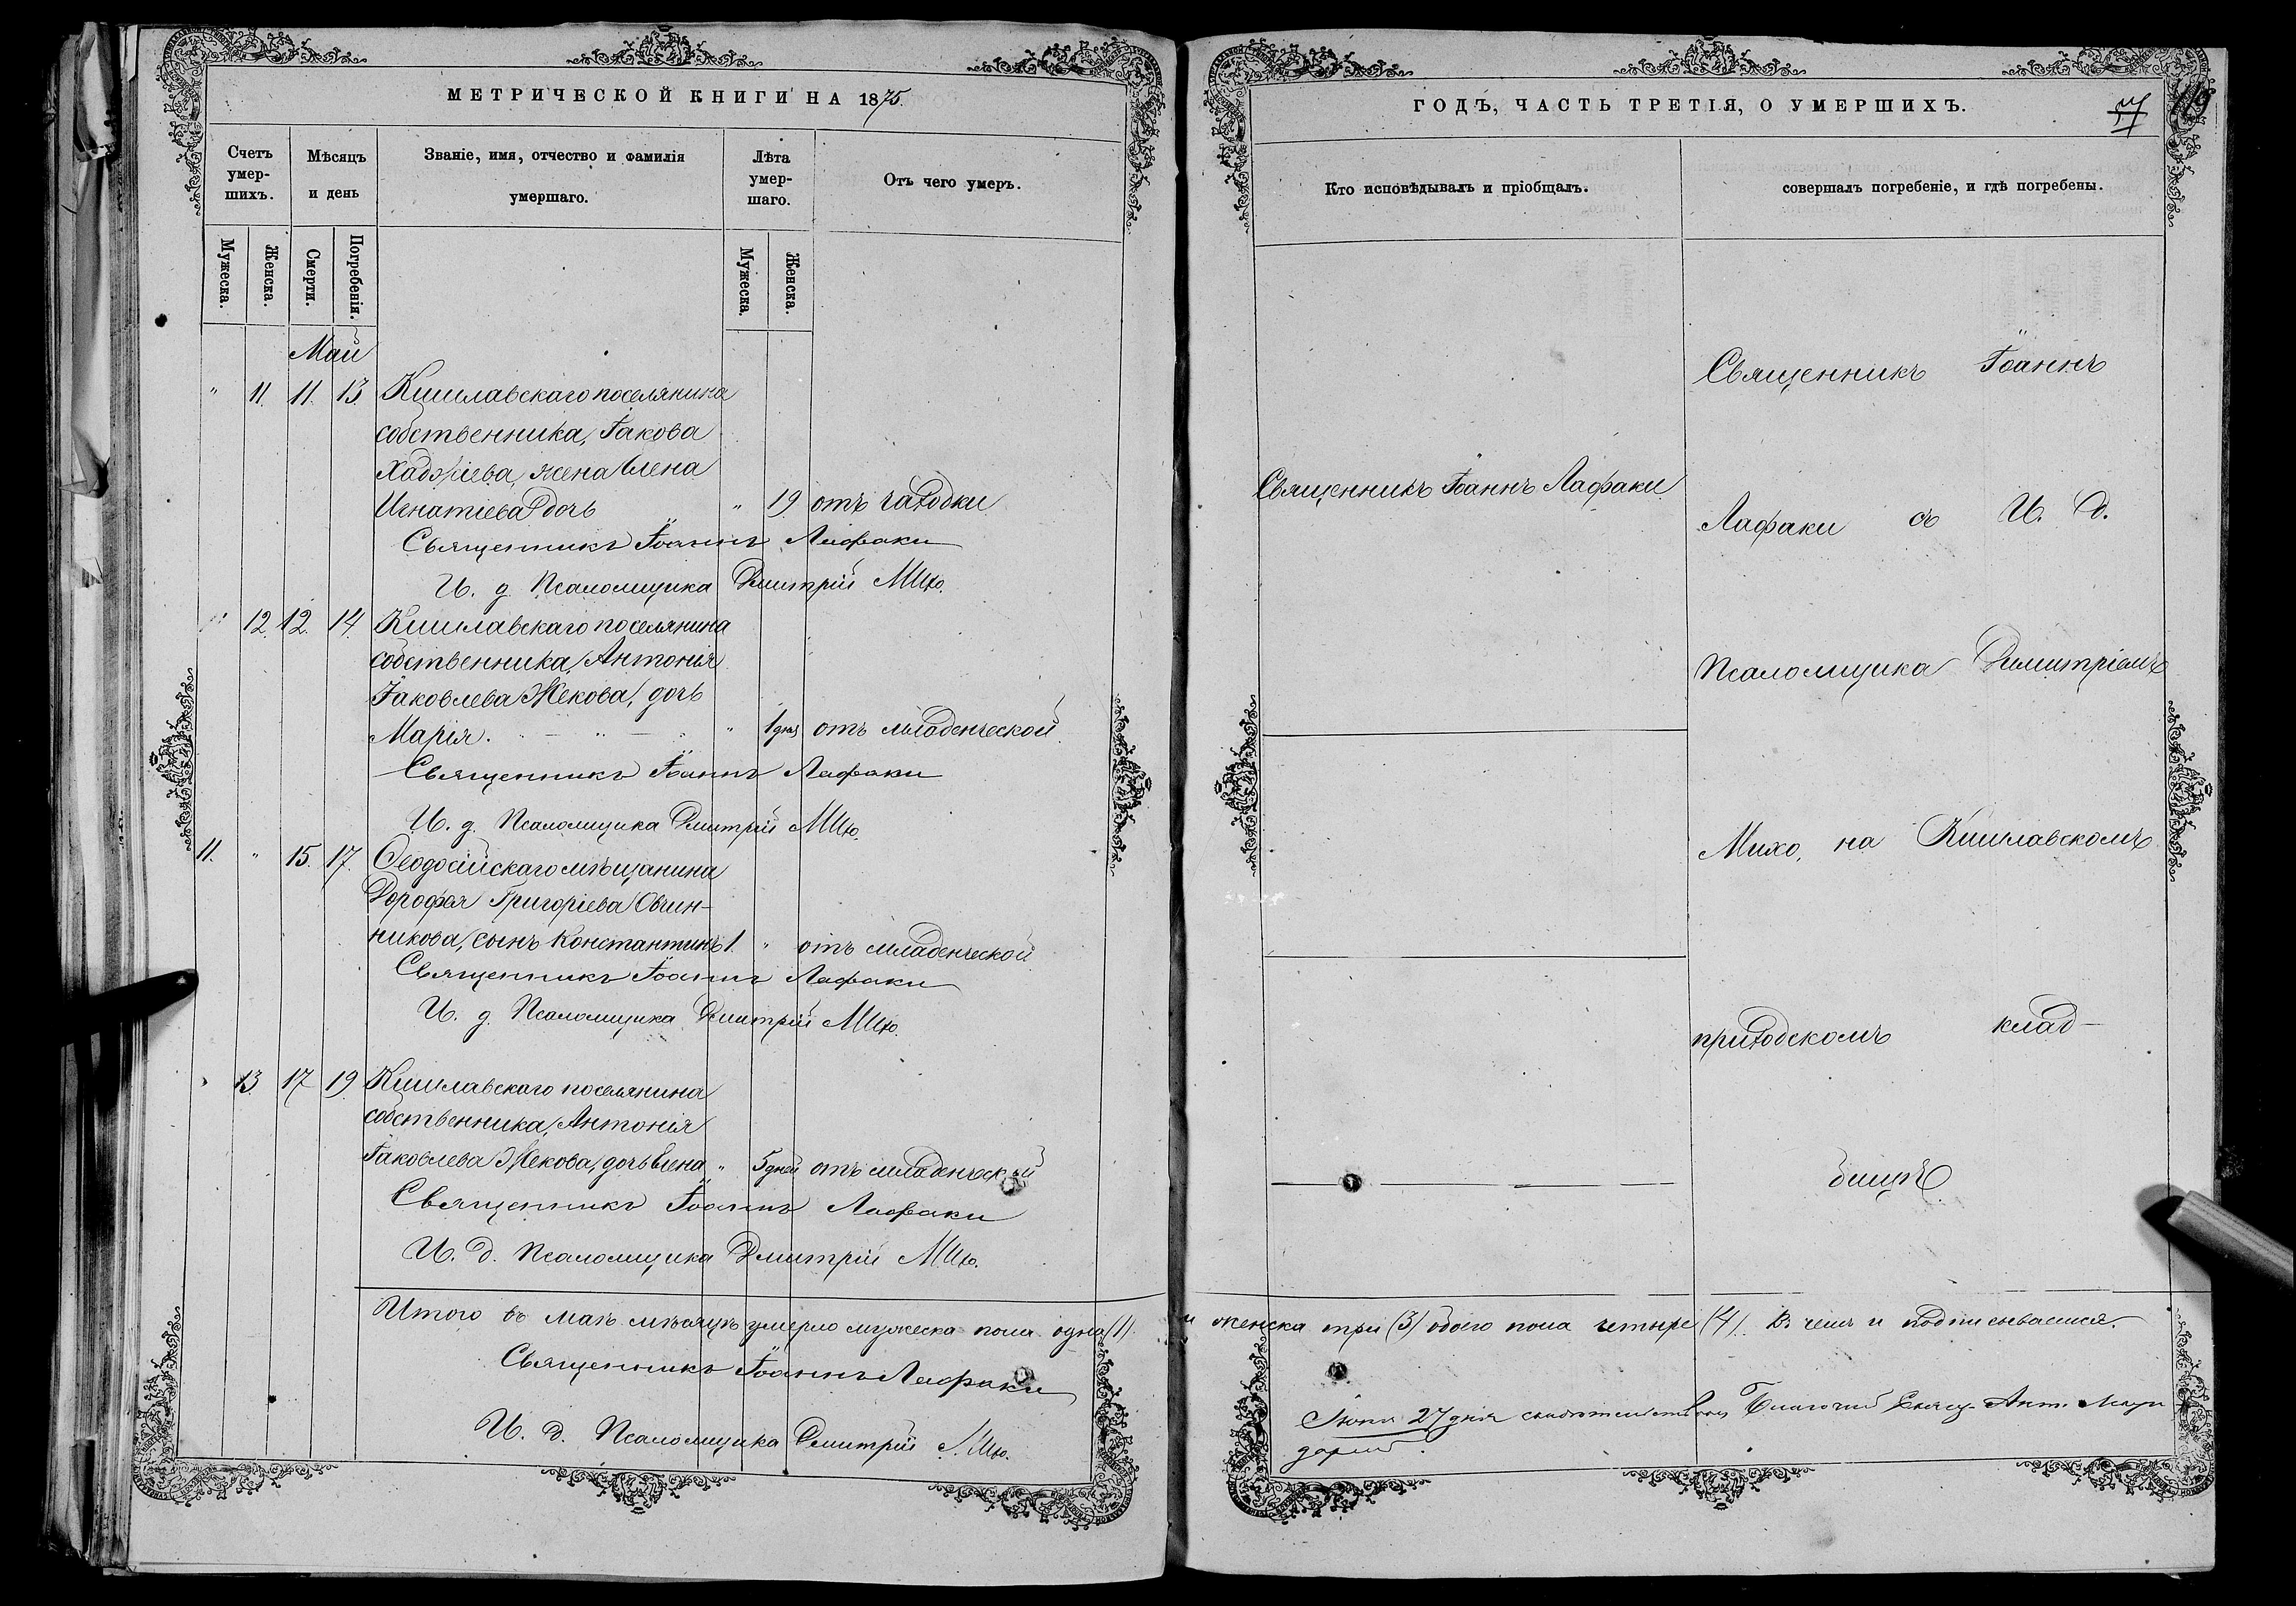 МЕТРИЧЕСКОЙ КНИГИ НА 1875
Счетъ умер-шихъ.
Мѣсяцъ и день
Званіе, имя, отчество и фамилія умершаго.
Лѣта умер-шаго.
Отъ чего умеръ.
Мужеска.
Женска.
Смерти.
Погребенія.
Мужеска.
Женска.
Май
" 11. 11. 13. Кишлавскаго поселянина
собственника, Іакова
Хаджіева, жена Елена
Игнатіева дочь " 19 отъ чахотки
Священникъ Іоаннъ Лафаки
И. д. Псаломщика Дмитрій Михо.
" 12. 12. 14. Кишлавскаго поселянина
собственника, Антонія
Іаковлева Жекова, дочь
Марія. " 1 дня отъ младенческой
Священникъ Іоаннъ Лафаки
И. д. Псаломщика Дмитрій Михо.
11. " 15. 17. Ѳеодосійскаго мѣщанина
Дорофея Григоріева Овчин-
никова, сынъ Константинъ 1. " отъ младенческой
Священникъ Іоаннъ Лафаки
И. д. Псаломщика Дмитрій Михо.
" 13 17 19 Кишлавскаго поселянина
собственника, Антонія
Іаковлева Жекова, дочь Елена " 5 дней отъ младенческой
Священникъ Іоаннъ Лафаки
И. д. Псаломщика Дмитрій Михо.
Итого въ маѣ мѣсяцѣ умерло мужеска пола одна (1)
Священникъ Іоаннъ Лафаки
И. д. Псаломщика Дмитрій Михо.
ГОДЪ, ЧАСТЬ ТРЕТІЯ, О УМЕРШИХЪ.
119
Кто исповѣдывалъ и пріобщалъ.
совершалъ погребеніе, и гдѣ погребены.
Священникъ Іоаннъ Лафаки
Священникъ Іоаннъ
Лафаки съ И. д.
Псаломщика Димитріемъ
Михо, на Кишлавскомъ
приходскомъ клад-
бищѣ.
и женска три (3) обоего пола четыре (4). Въ чемъ и подписываемся.
Іюня 27 дня свидѣтельствовалъ Благочин. Свящ. Ант.